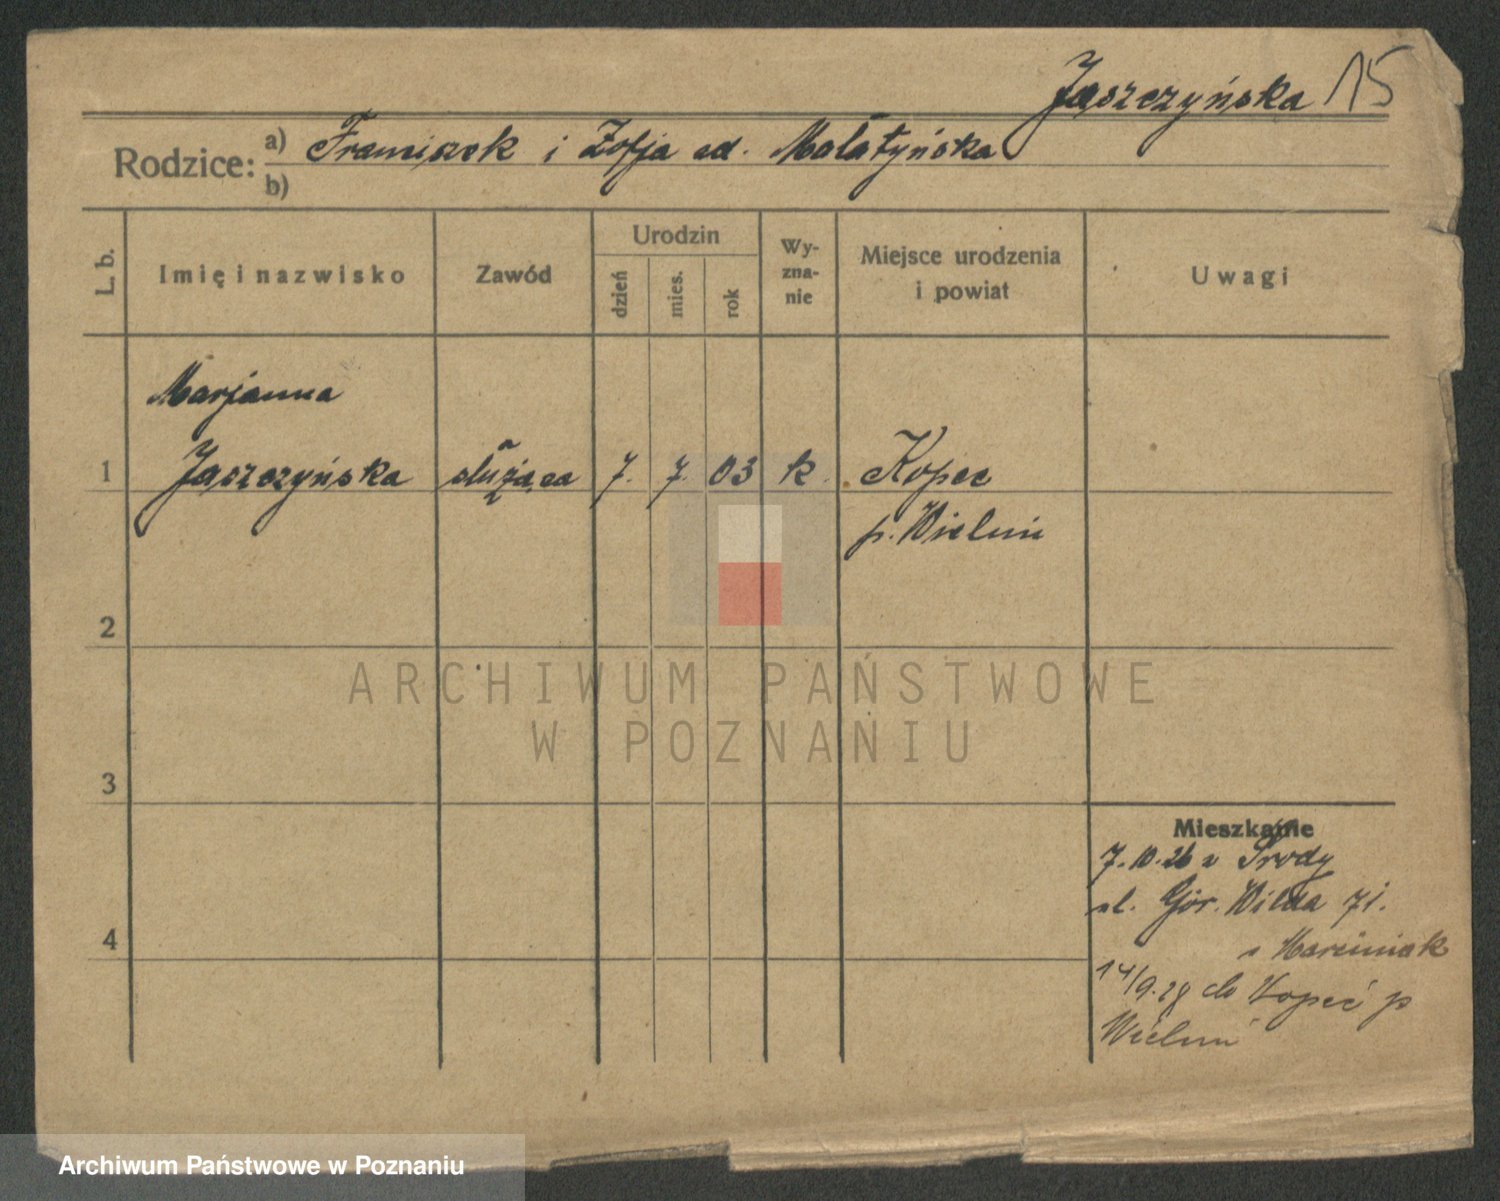 Jaszczyńska 15
Rodzice: a) Franciszek i Zofja od. Małatyńska
b)
L. b.
Imię i nazwisko
Zawód
Urodzin
dzień
mies.
rok
Wy-
zna-
nie
Miejsce urodzenia
i powiat
Uwagi
Marjanna
1 Jaszczyńska służąca 7. 7. 03 k. Kopec
p. Wieluń
2
3
4
Mieszkanie
7.10.26 z Środy
ul. Gór. Wilda 71.
u Marciniak
14/9.28 do Kopeć p
Wieluń
ARCHIWUM PAŃSTWOWE
W POZNANIU
Archiwum Państwowe w Poznaniu